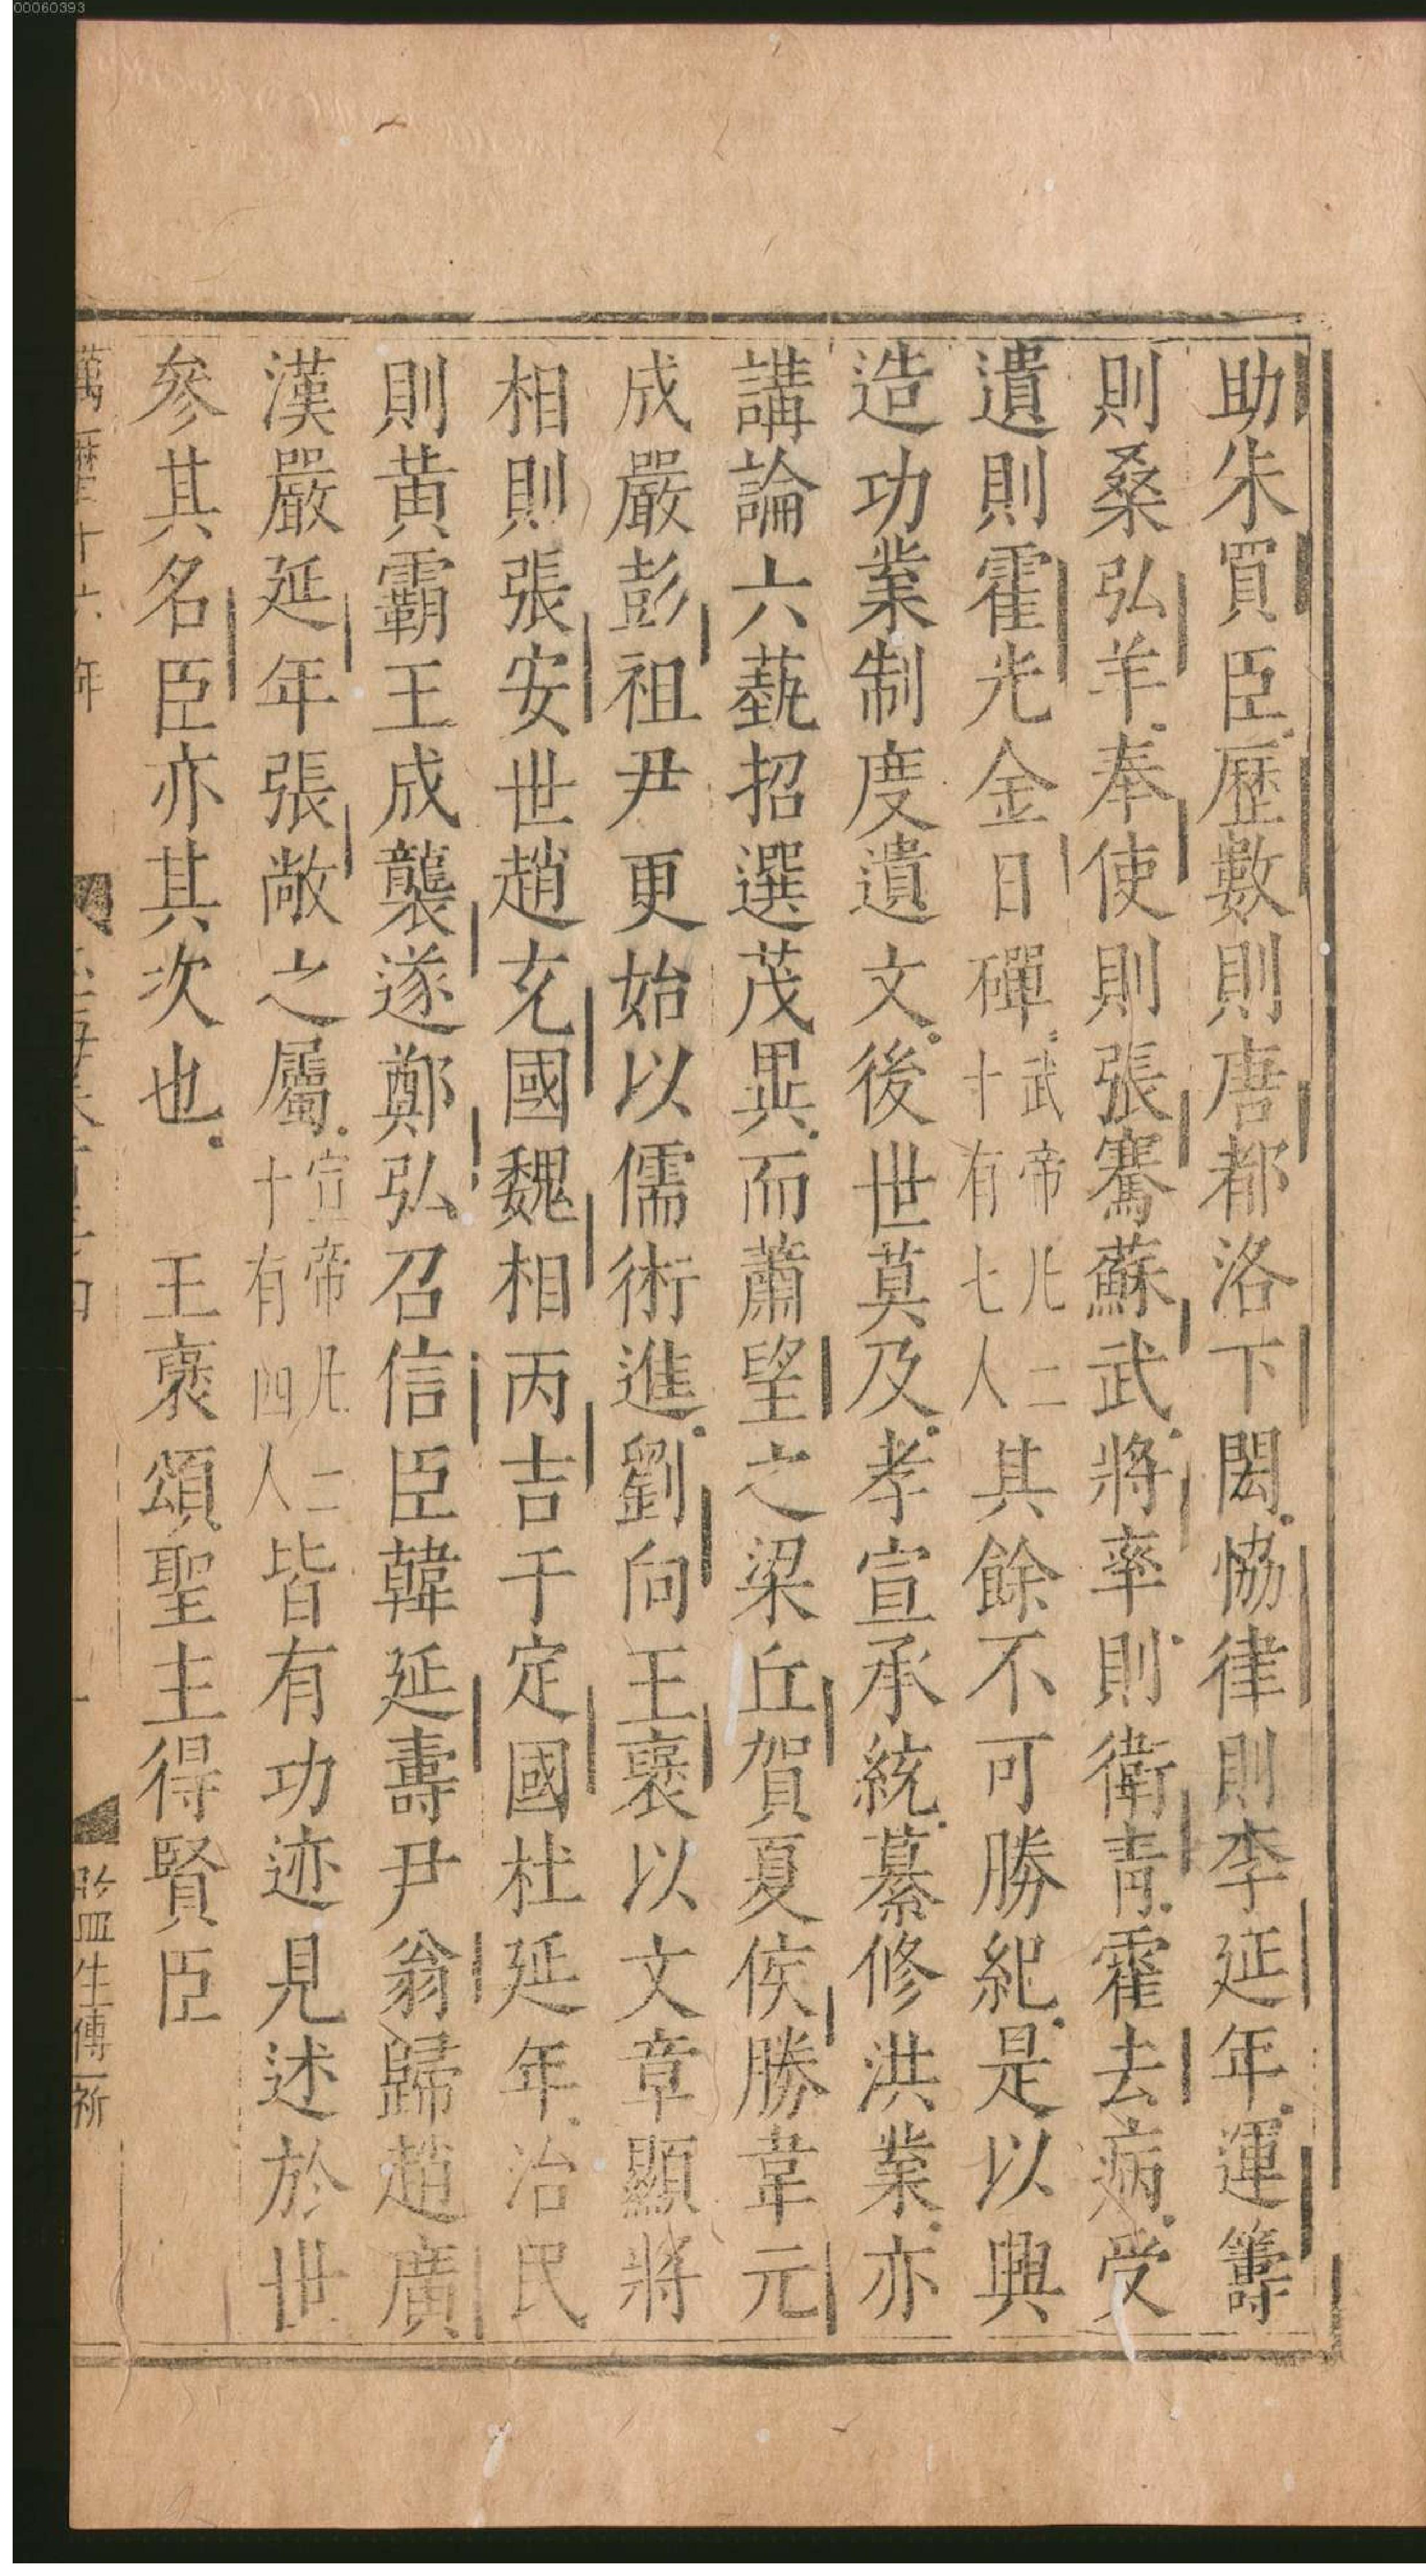 00060393
助朱買臣歷數則唐都洛下閎恊律則李延年運籌
則桑弘羊奉使則張騫蘇武將率則衛青霍去病受
遺則霍光金日磾武帝凡二十有七人其餘不可勝紀是以興
造功業制度遺文後世莫及孝宣承統纂修洪業亦
講論六蓺招選茂異而蕭望之梁丘賀夏侯勝韋元
成嚴彭祖尹更始以儒術進劉向王襃以文章顯將
相則張安世趙充國魏相丙吉于定國杜延年治民
則黃霸王成龔遂鄭弘召信臣韓延壽尹翁歸趙廣
漢嚴延年張敞之屬宣帝凡二十有四人皆有功迹見述於世
參其名臣亦其次也 王襃頌聖主得賢臣
萬曆十六年
監生傅一新